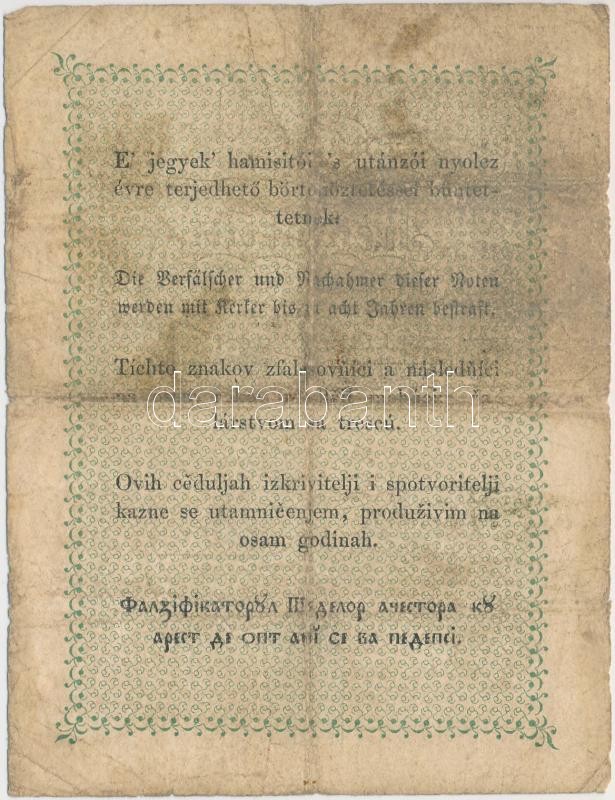 E' jegyek' hamisitói 's utánzói nyolcz
évre terjedhető börtönöztetéssel büntet-
tetnek.
Die Verfälscher und Nachahmer dieser Noten
werden mit Kerker bis zu acht Jahren bestraft.
Tíchto znakov zfalšovňíci a následňíci
na
darabanth
társtvom sa trescú.
Ovih cěduljah izkrivitelji i spotvoritelji
kazne se utamničenjem, produživim na
osam godinah.
Фалзіфікаторꙋл Шіделор ачестора кꙋ
арест де опт анĭ се ва педепсі.